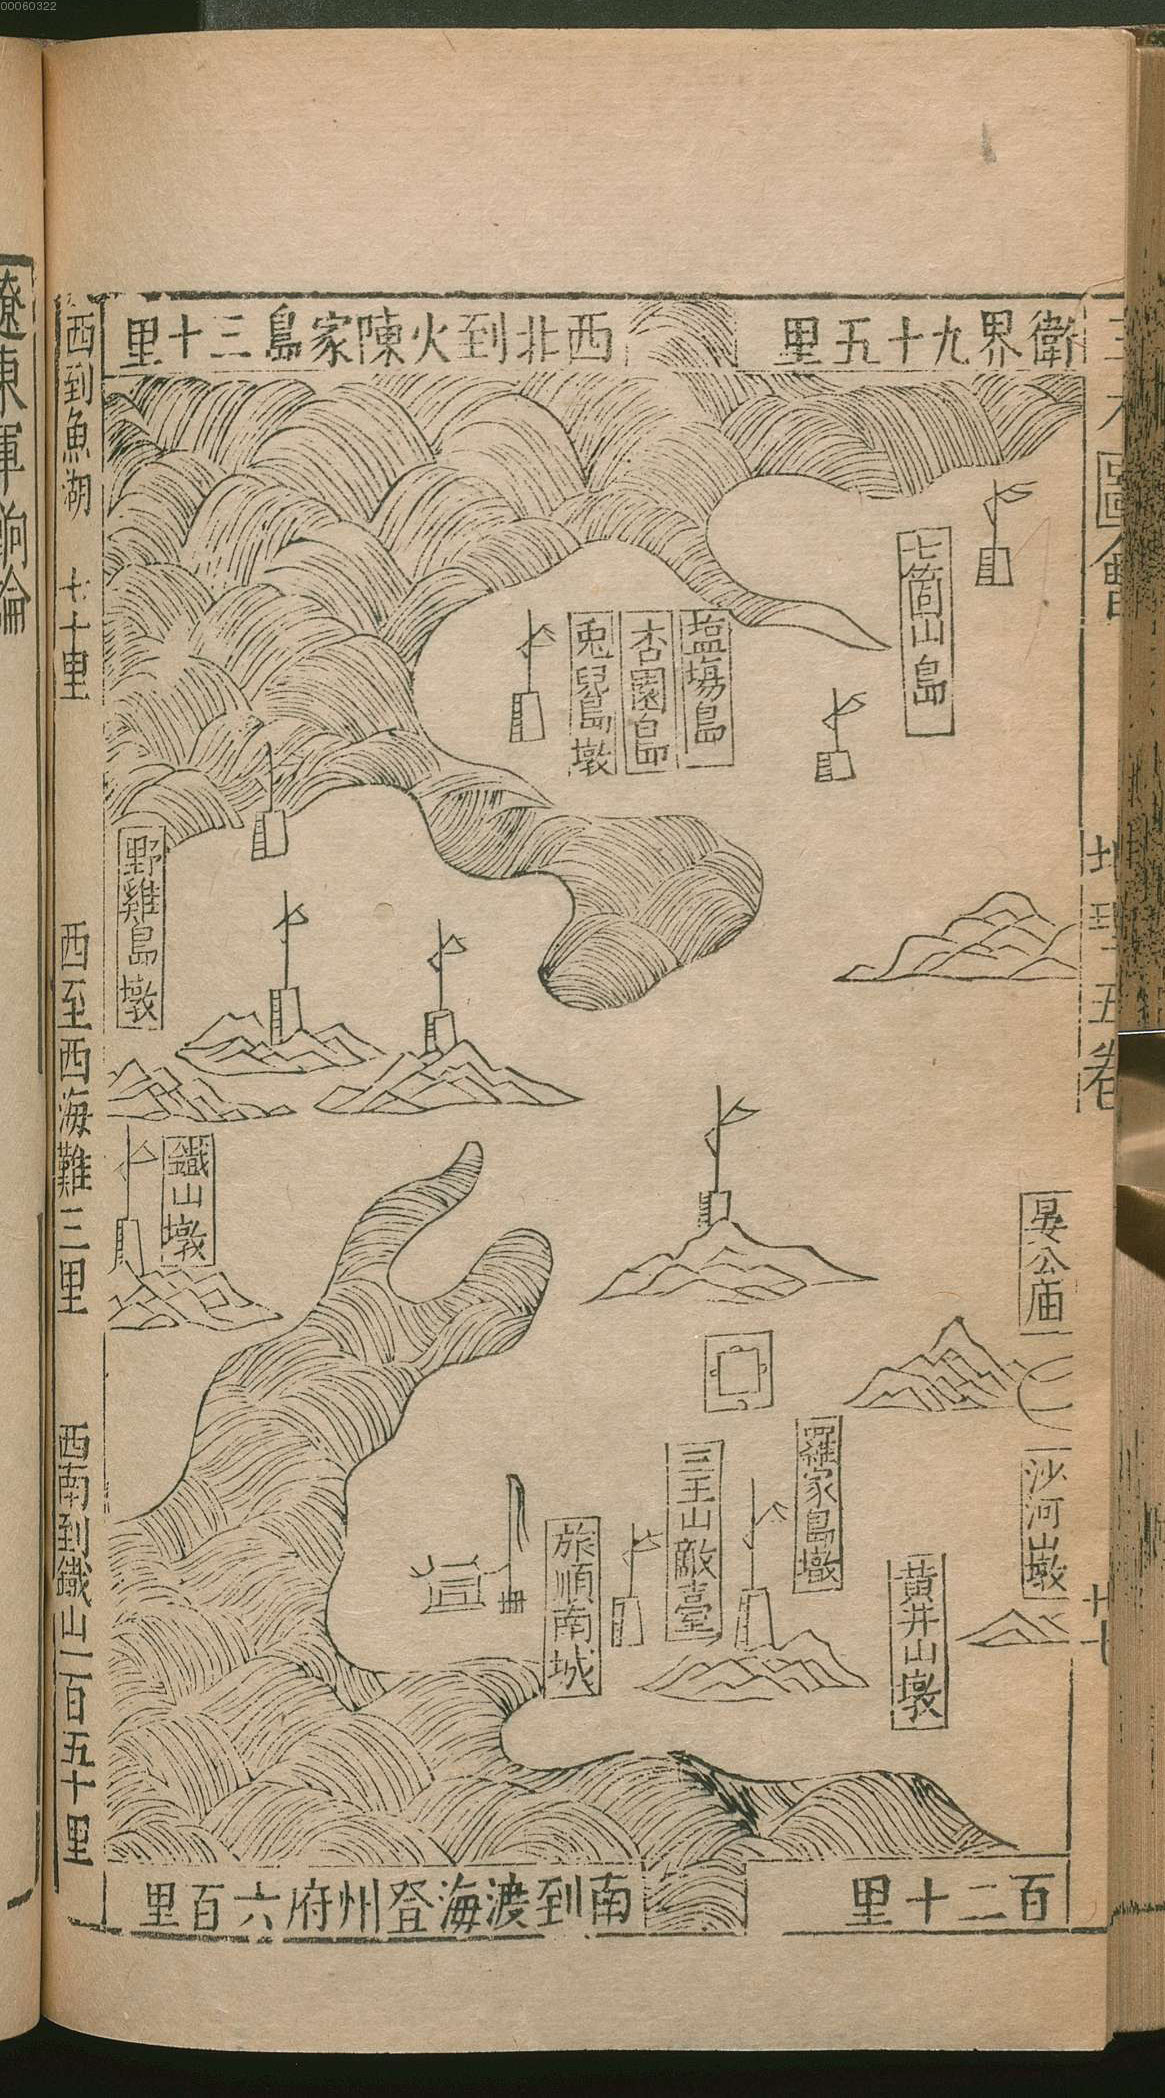 00060322
衛界九十五里
西北到火陳家島三十里
圖會
地理五卷
廿七
七箇山島
塩塲島
杏園島
兎兒島墩
野雞島墩
鐵山墩
晏公庙
沙河山墩
黃井山墩
羅家島墩
三王山敵臺
旅順南城
西到魚湖 七十里
西至西海難三里
西南到鐵山一百五十里
百二十里
南到渡海登州府六百里
遼東軍餉論